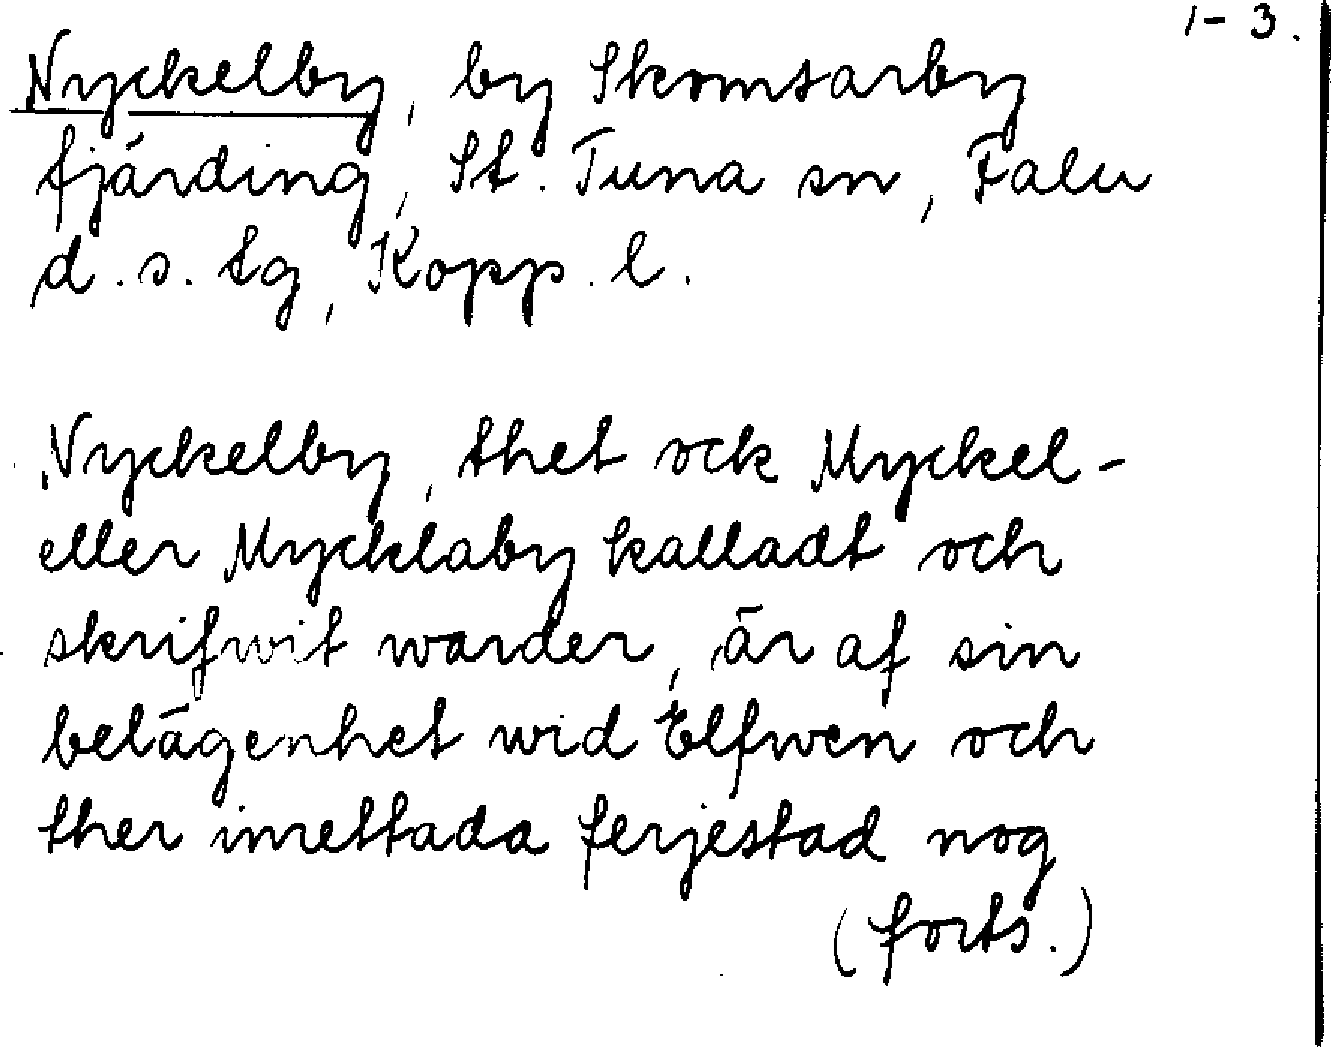 1-3.
Nyckelby, by Skomsarby
fjärding, St. Tuna sn, Falu
d.s. tg, Kopp. l.
Nyckelby, thet ock Myckel-
eller Mycklaby kalladt och
skrifwit warder, är af sin
belägenhet wid Elfwen och
ther inrettada ferjestad nog
(forts.)